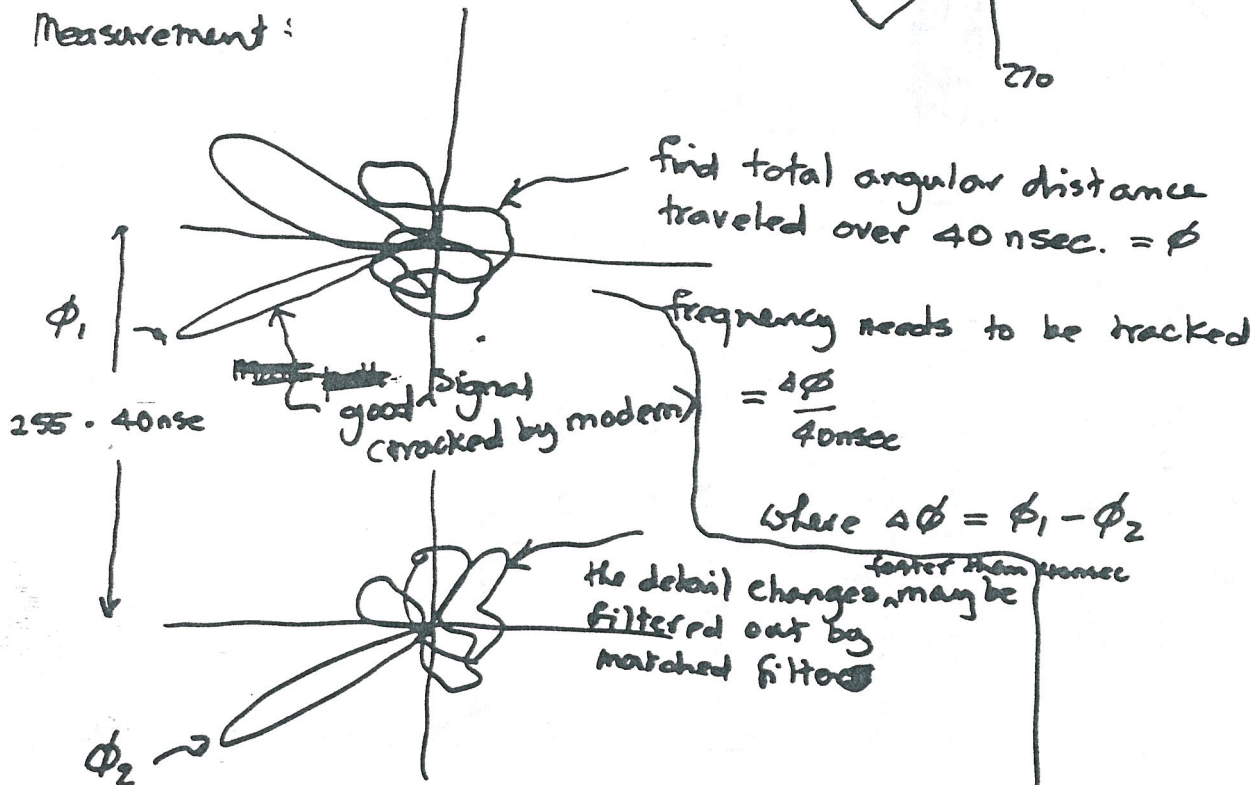 Measurement:
270
find total angular distance
traveled over 40 nsec. = ϕ
ϕ₁
255 · 40nse
good signal
(tracked by modem)
frequency needs to be tracked
= Δϕ
40nsec
where Δϕ = ϕ₁ - ϕ₂
faster than 40nsec
the detail changes ^ may be
filtered out by
matched filter
ϕ₂